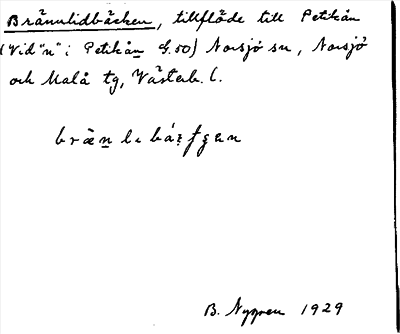 Brännlidbäcken, tillflöde till Petikån
(Vid "n" i Petikån G.50) Norsjö sn, Norsjö
och Malå tg, Västerb. l.
B. Nygren 1929